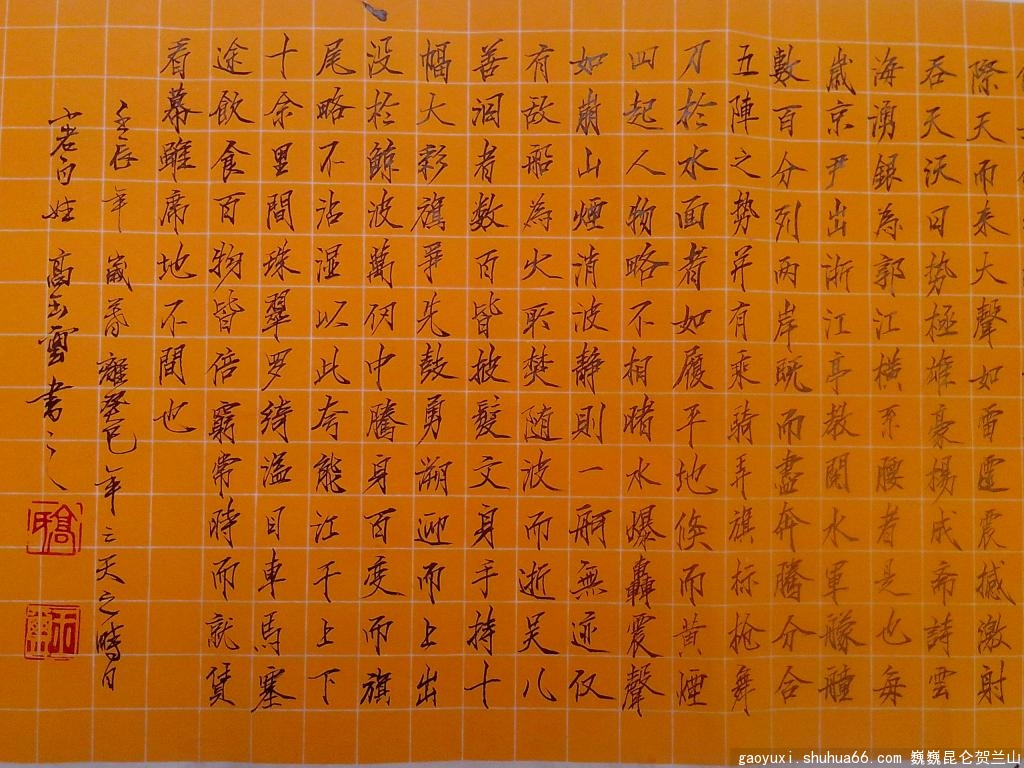 際天而来大聲如雷霆震撼激射
吞天沃日势極雄豪楊成斋詩雲
海湧銀為郭江橫系腰者是也每
歲京尹出浙江亭教閱水軍艨艟
數百分列兩岸既而盡奔騰分合
五陣之势并有乘騎弄旗标枪舞
刀於水面者如履平地倏而黄煙
四起人物略不相睹水爆轟震聲
如崩山煙消波静則一舸無迹仅
有敌船為火所焚随波而逝吴儿
善泅者数百皆披髮文身手持十
幅大彩旗爭先鼓勇溯迎而上出
没於鯨波萬仞中騰身百变而旗
尾略不沾湿以此夸能江干上下
十余里間珠翠罗绮溢目車馬塞
途飲食百物皆倍窮常時而就赁
看幕雖席地不間也
壬辰年
歲暮離癸巳年三天之時日
小老百姓 高玉雲書之
gaoyuxi.shuhua66.com 巍巍昆仑贺兰山